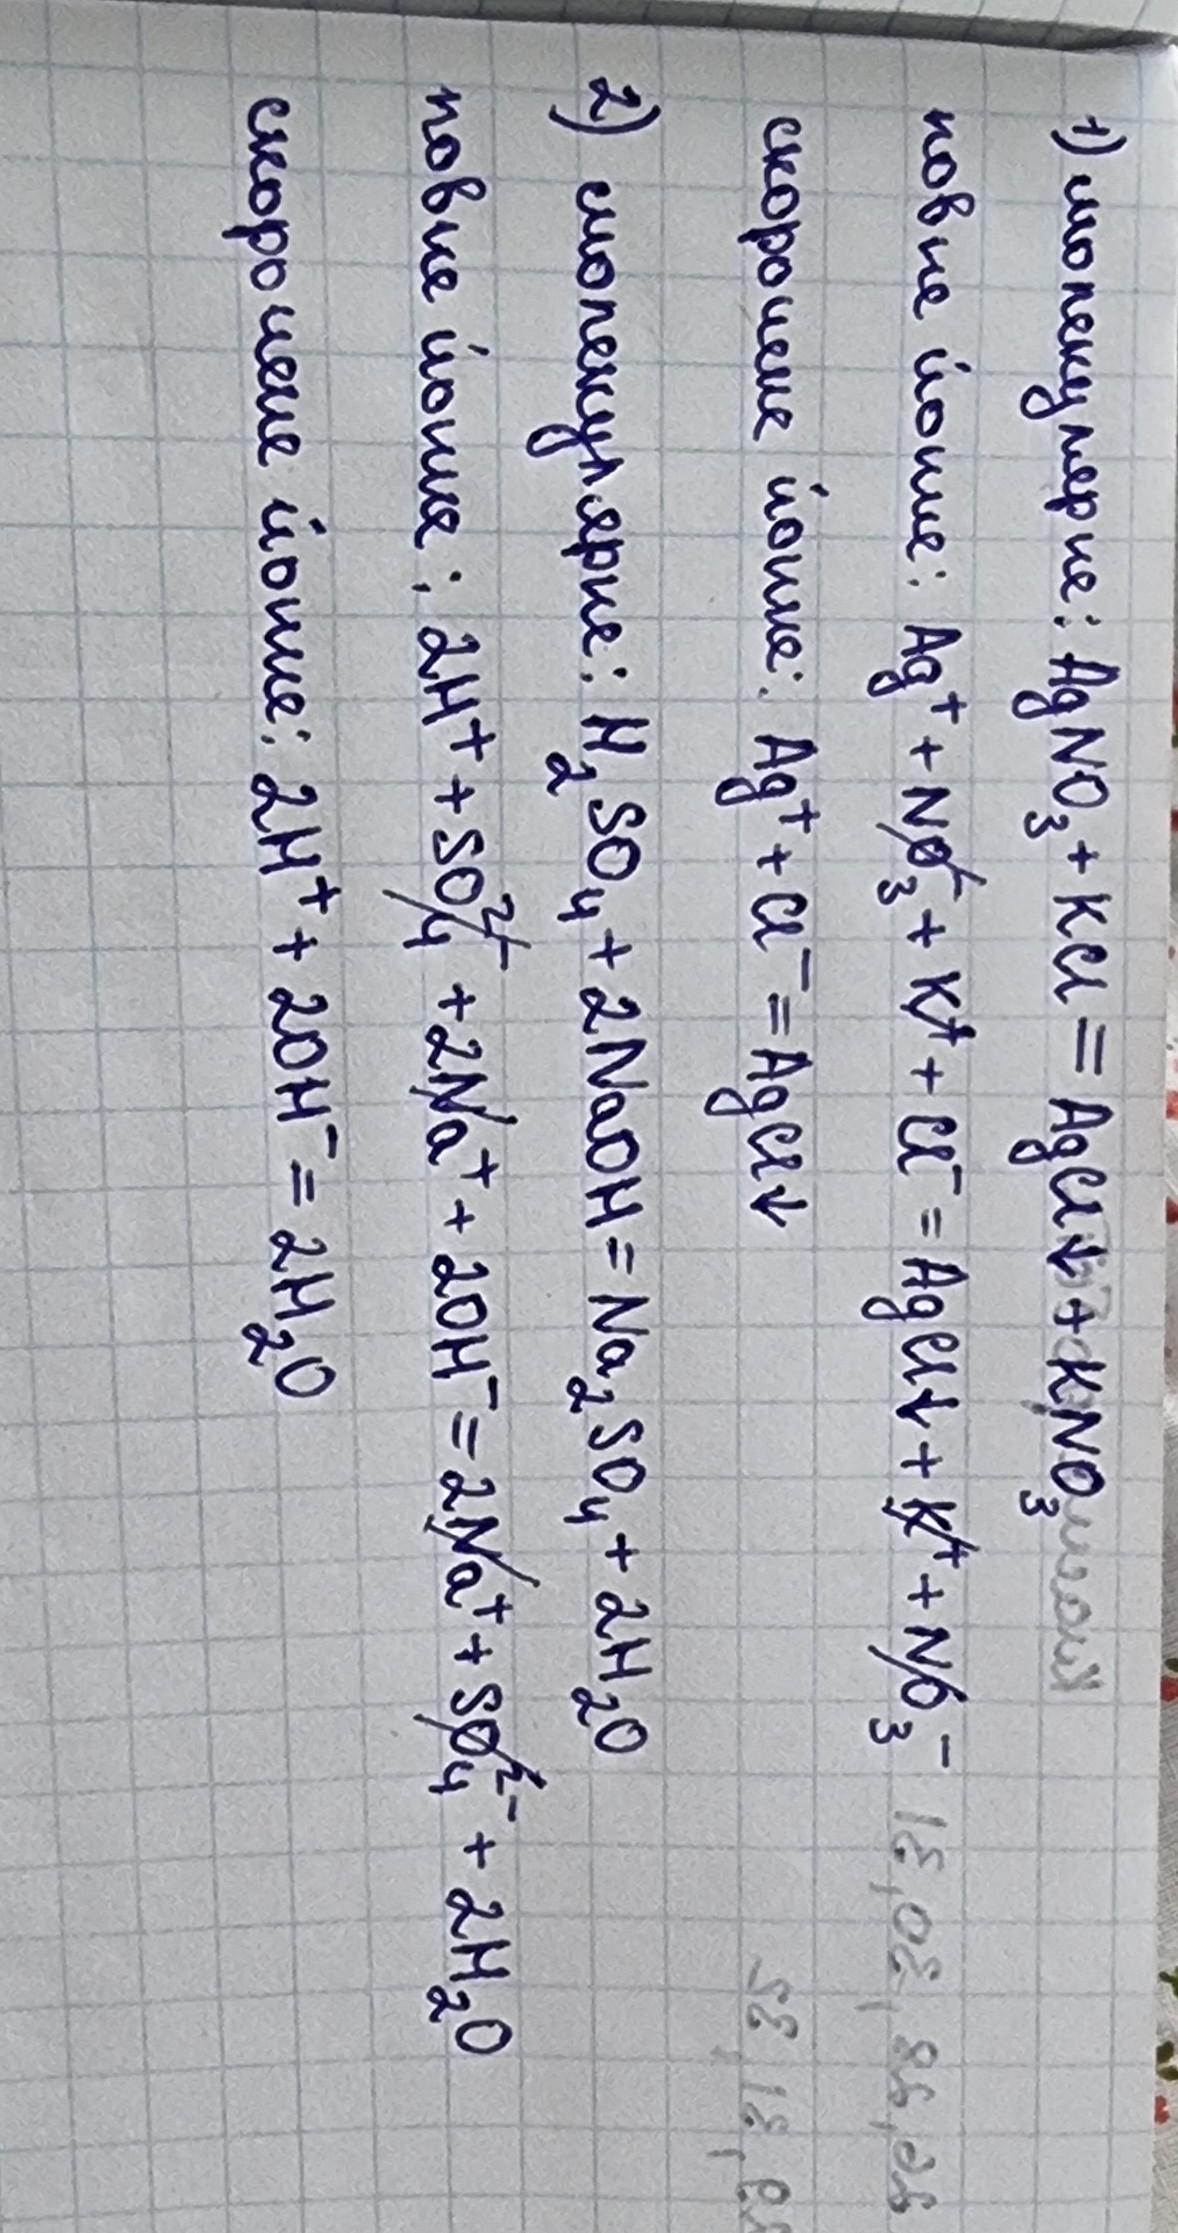 1) молекулярне: AgNO₃ + KCl = AgCl↓ + KNO₃
повне йонне: Ag⁺ + NO₃⁻ + K⁺ + Cl⁻ = AgCl↓ + K⁺ + NO₃⁻
скорочене йонне: Ag⁺ + Cl⁻ = AgCl↓
2) молекулярне: H₂SO₄ + 2NaOH = Na₂SO₄ + 2H₂O
повне йонне: 2H⁺ + SO₄²⁻ + 2Na⁺ + 2OH⁻ = 2Na⁺ + SO₄²⁻ + 2H₂O
скорочене йонне: 2H⁺ + 2OH⁻ = 2H₂O